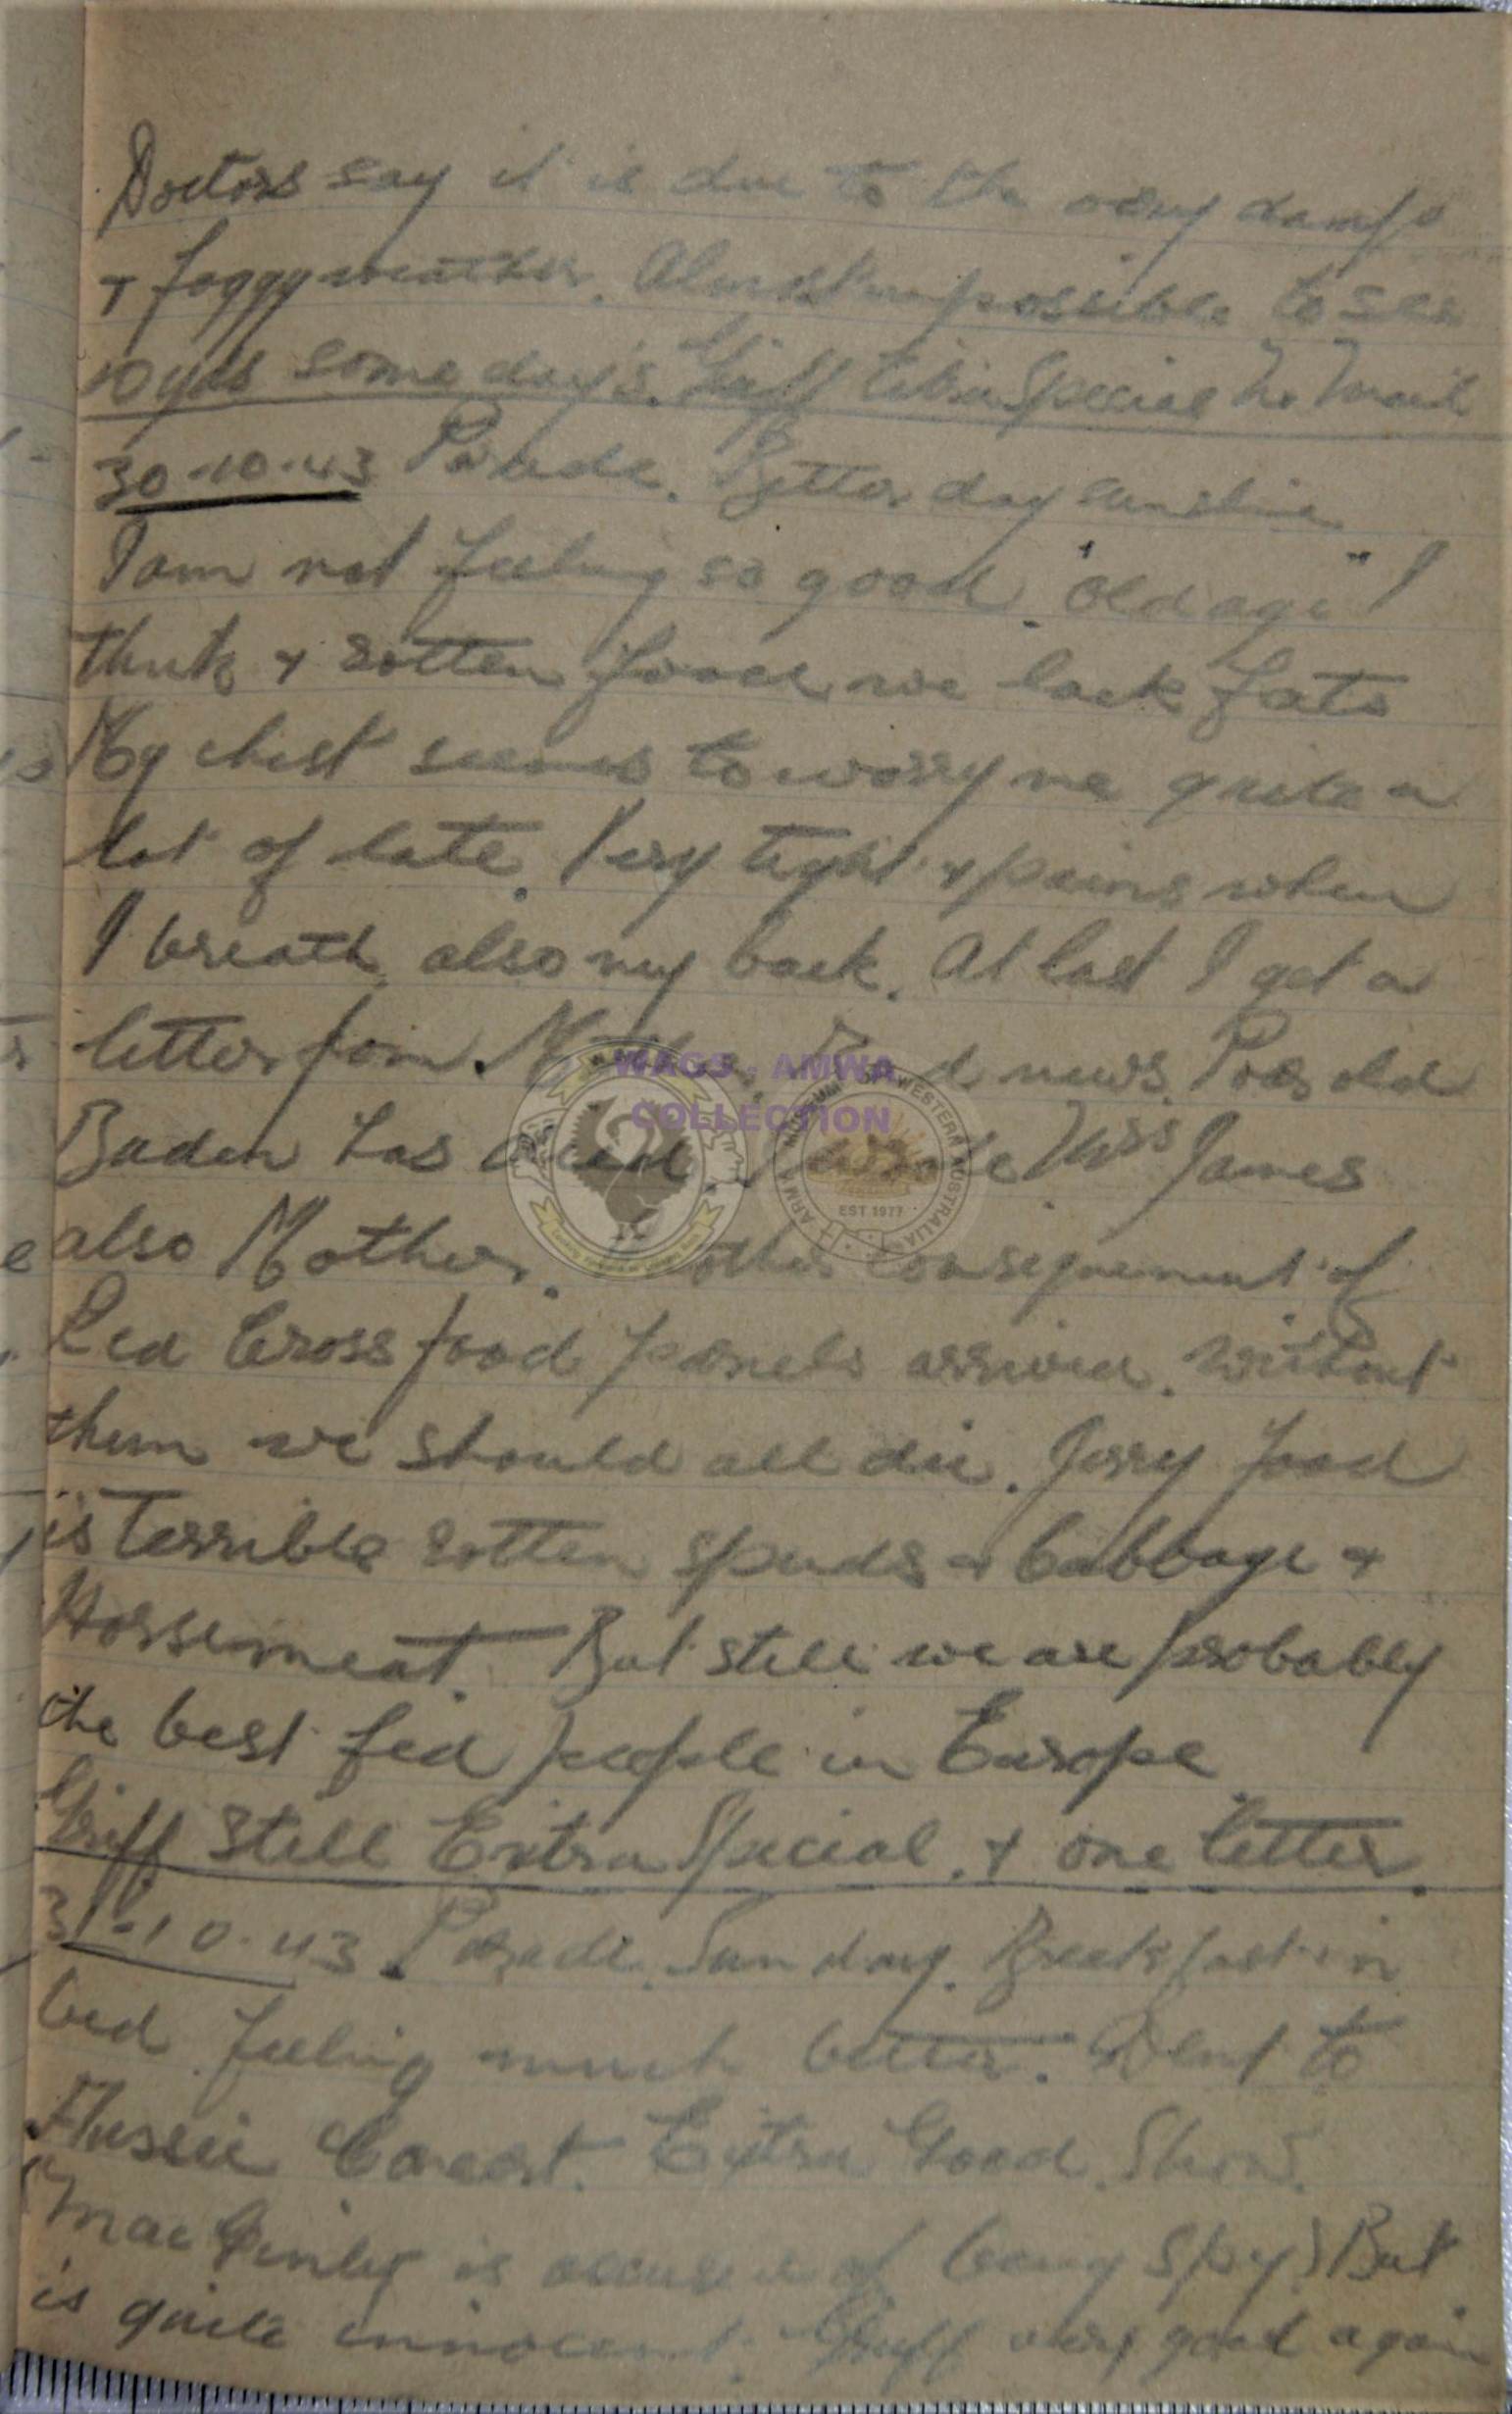 Doctors say it is due to the very damp
+ foggy weather. Almost impossible to see
10 yds some days. Griff Extra Special No Mail
30-10-43 Parade. Better day sunshine
I am not feeling so good. "Old age" I
think + rotten food we lack fats
My chest seems to worry me quite a
lot of late. Very tight + pains when
I breath also my back. At last I get a
letter from Mother. news. Poor old
Baden has died. Mrs James
also Mother. other consignement of
Red Cross food parcels arrived. Without
them we should all die. Jerry food
is terrible rotten spuds + Cabbage +
Horsemeat. But still we are probably
the best fed people in Europe
Griff still Extra Special. + one letter.
31-10-43. Parade. Sunday. Breakfast in
bed feeling much better. Went to
Music Concert. Extra Good Show.
(Mac is accused of being Spy) But
is quite innocent. Griff very good again
WAGS - AMWA
COLLECTION
WESTERN AUSTRALIA
EST 1977